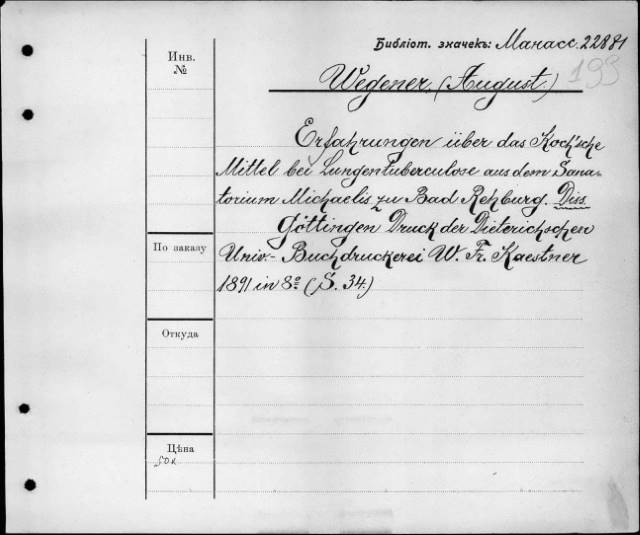 Библіот. значекъ: Манасс. 22881
Инв.
№
193
Wegener, (August.)
Erfahrungen über das Koch'sche
Mittel bei Lungentuberculose aus dem Sana-
torium Michaelis zu Bad Rehburg. Diss.
Göttingen Druck der Dieterichschen
По заказу
Univ.- Buchdruckerei W. Fr. Kaestner
1891 in 8º (S. 34.)
Откуда
Цѣна
50к